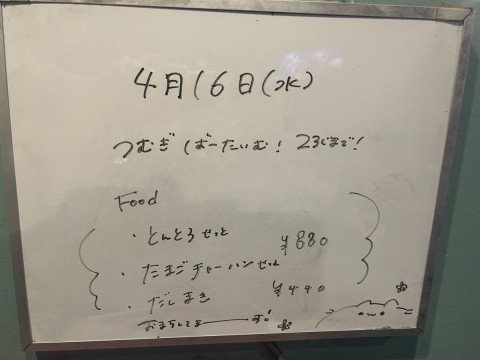 4月16日(水)
つむぎ ばーたいむ! 23じまで!
Food
・とんとろせっと ¥880
・たまごチャーハンせっと
・だしまき ¥440
おまちしてまーーーす!